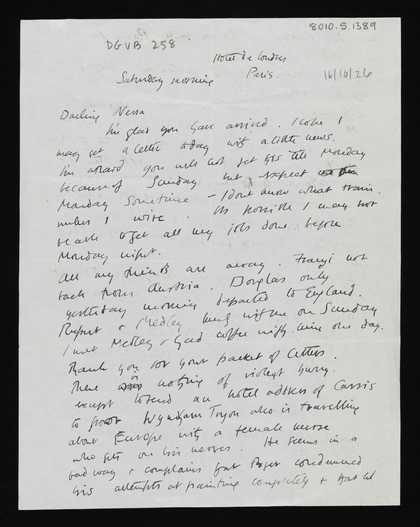 8010.5.1389
DGVB 258
Hotel de Londres
Saturday morning Paris. 16/10/26
Darling Nessa
I'm glad you have arrived. I hope I
may get a letter today with a little news.
I'm afraid you will not get this till Monday
because of Sunday but expect me
Monday sometime – I don't know what train.
unless I wire. It's possible I may not
be able to get all my jobs done before
Monday night.
All my friends are away. Frangi not
back from Austria. Douglas only
yesterday morning departed to England.
Rupert & Medley with me on Sunday
I met Medley & had coffee with him one day.
Thank you for your packet of letters.
There nothing of violent hurry.
except to send an hotel address of Cassis
to poor Wyndham Tryon who is travelling
about Europe with a female nurse
who gets on his nerves. He seems in a
bad way & complains that Roger condemned
his attempts at painting completely & that